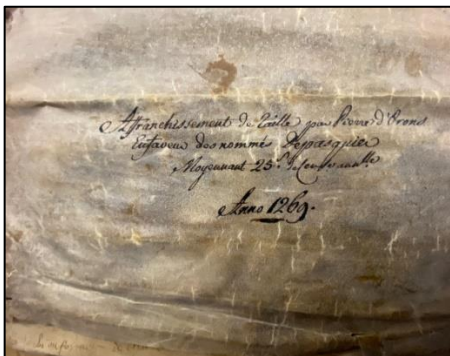 Affranchissement de Taille par Pierre d'Oronel
En faveur des nommés Depasquier
Moyennant 25.s de Cense annuelle
Anno 1269.